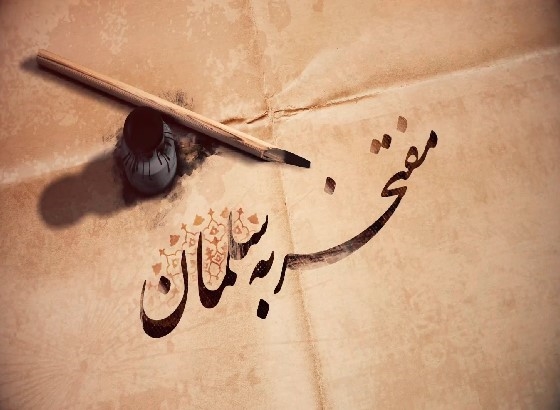 مفتخر به سلمان